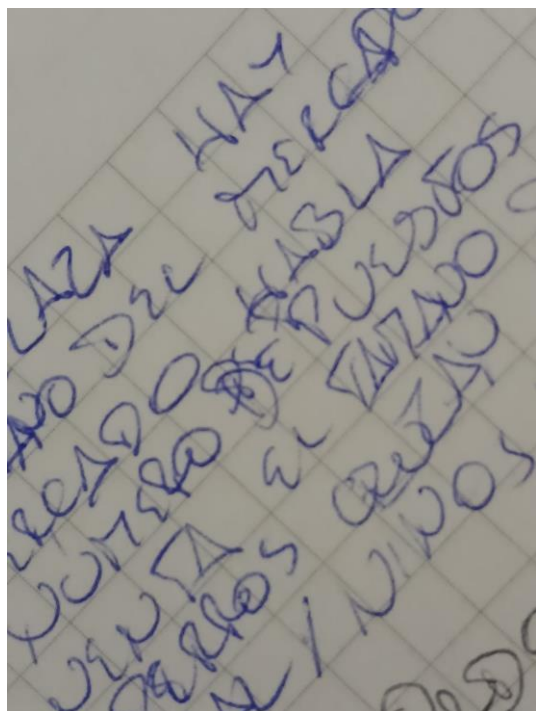 LAZA HAY
ANO DEL MERCADO
ERCADO HABLA
NUMERO DE PUESTOS
VENTA EL TAMANO
PERROS CRUZAN
NINOS